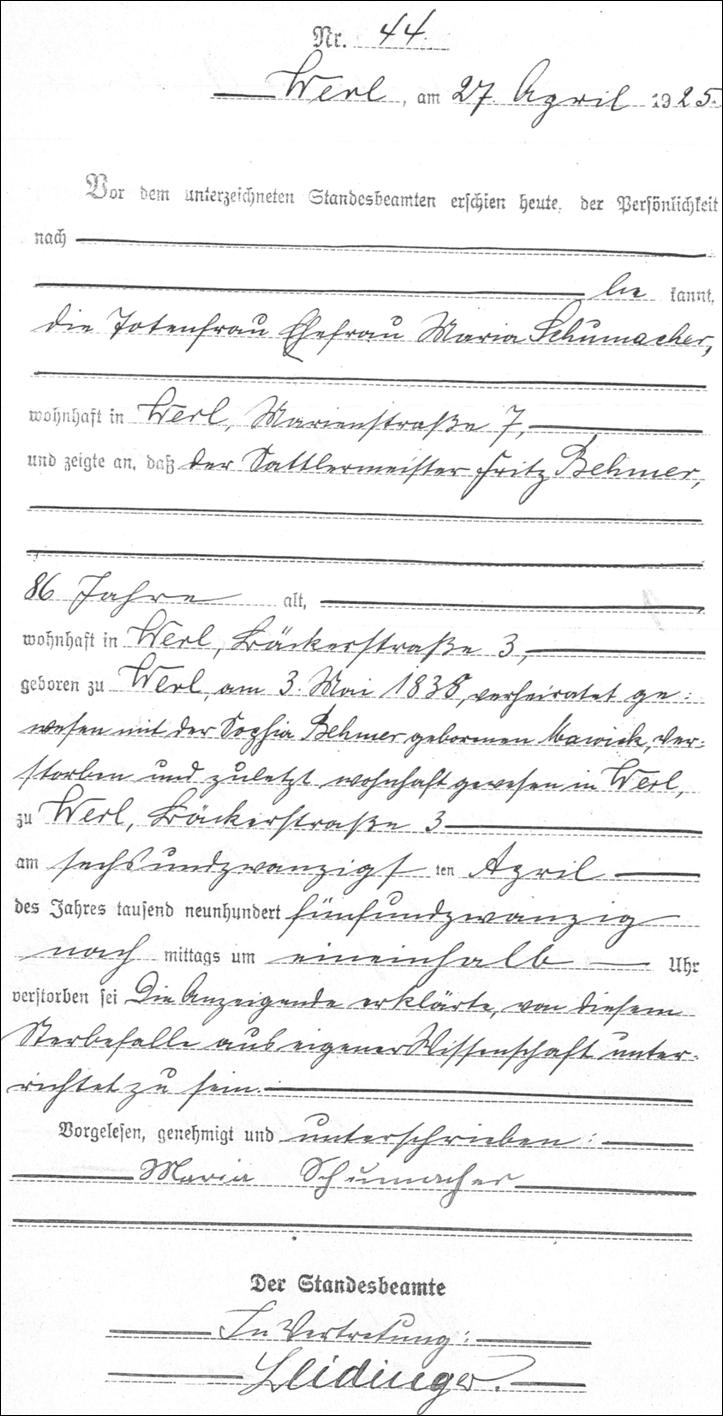 Nr. 44.
Werl, am 27. April 1925.
Vor dem unterzeichneten Standesbeamten erschien heute, der Persönlichkeit
nach
be kannt,
die Totenfrau Ehefrau Maria Schumacher,
wohnhaft in Werl, Marienstraße 7,
und zeigte an, daß der Sattlermeister Fritz Behmer,
86 Jahre alt,
wohnhaft in Werl, Bäckerstraße 3,
geboren zu Werl, am 3. Mai 1838, verheiratet ge:
wesen mit der Sophia Behmer geborenen Mawick, ver:
storben und zuletzt wohnhaft gewesen in Werl,
zu Werl, Bäckerstraße 3
am sechsundzwanzigs ten April
des Jahres tausend neunhundert fünfundzwanzig
nach mittags um eineinhalb Uhr
verstorben sei Die Anzeigende erklärte, von diesem
Sterbefalle aus eigener Wissenschaft unter-
richtet zu sein.
Vorgelesen, genehmigt und unterschrieben:
Maria Schumacher
Der Standesbeamte
In Vertretung:
Leidinger.